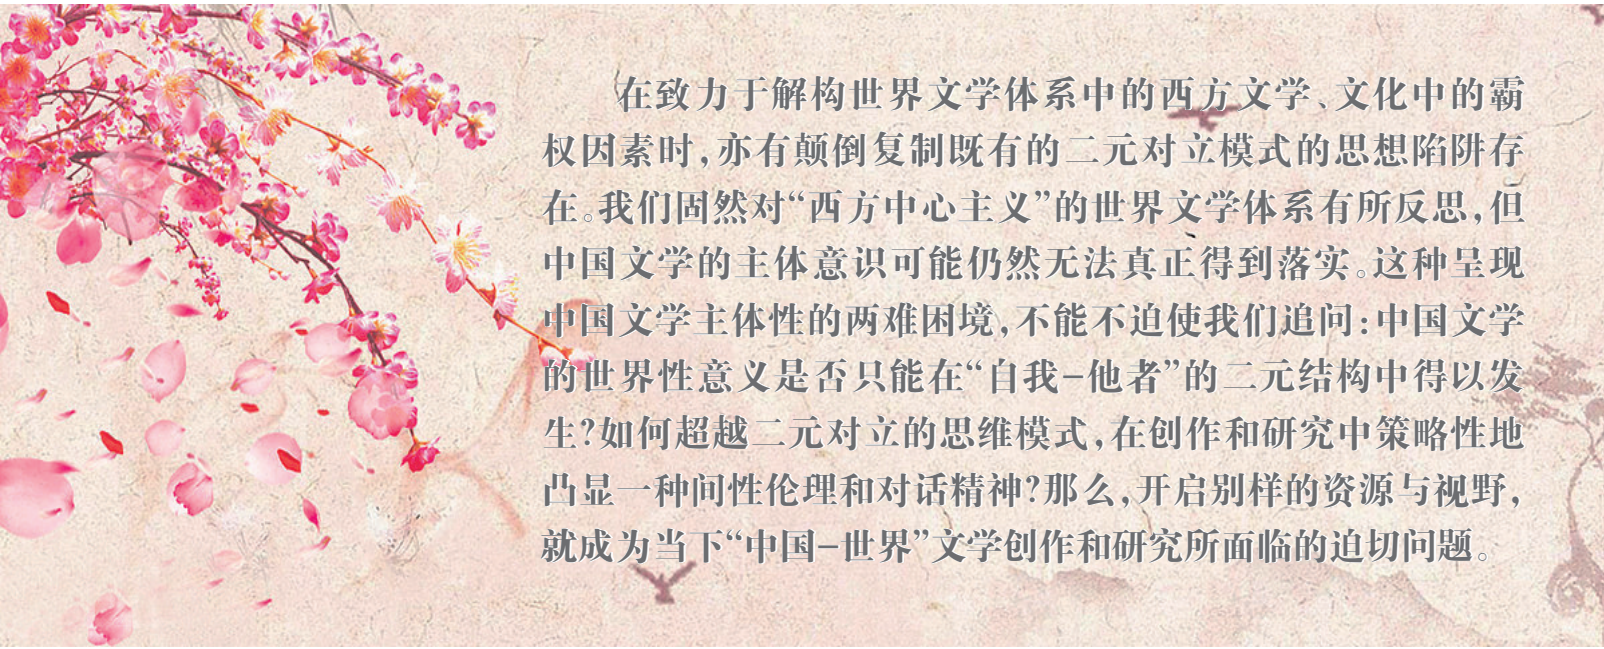 在致力于解构世界文学体系中的西方文学、文化中的霸
权因素时,亦有颠倒复制既有的二元对立模式的思想陷阱存
在。我们固然对“西方中心主义”的世界文学体系有所反思,但
中国文学的主体意识可能仍然无法真正得到落实。这种呈现
中国文学主体性的两难困境,不能不迫使我们追问:中国文学
的世界性意义是否只能在“自我–他者”的二元结构中得以发
生?如何超越二元对立的思维模式,在创作和研究中策略性地
凸显一种间性伦理和对话精神?那么,开启别样的资源与视野,
就成为当下“中国–世界”文学创作和研究所面临的迫切问题。